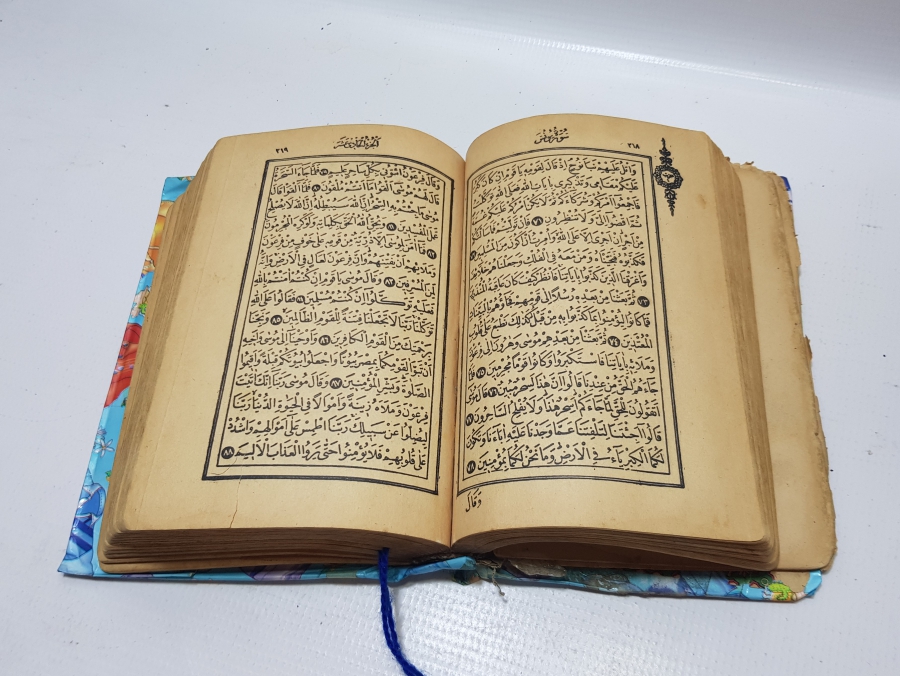 سورة يونس
٢١٨
وَاتْلُ عَلَيْهِمْ نَبَاَ نُوحٍ اِذْ قَالَ لِقَوْمِهِ يَا قَوْمِ اِنْ كَانَ كَبُرَ
عَلَيْكُمْ مَقَامِي وَتَذْكِيرِي بِاٰيَاتِ اللّٰهِ فَعَلَى اللّٰهِ تَوَكَّلْتُ
فَاَجْمِعُوا اَمْرَكُمْ وَشُرَكَاءَكُمْ ثُمَّ لَا يَكُنْ اَمْرُكُمْ عَلَيْكُمْ غُمَّةً
ثُمَّ اقْضُوا اِلَيَّ وَلَا تُنْظِرُونِ ٧١ فَاِنْ تَوَلَّيْتُمْ فَمَا سَاَلْتُكُمْ
مِنْ اَجْرٍ اِنْ اَجْرِيَ اِلَّا عَلَى اللّٰهِ وَاُمِرْتُ اَنْ اَكُونَ مِنَ الْمُسْلِمِينَ ٧٢
فَكَذَّبُوهُ فَنَجَّيْنَاهُ وَمَنْ مَعَهُ فِي الْفُلْكِ وَجَعَلْنَاهُمْ خَلَائِفَ
وَاَغْرَقْنَا الَّذِينَ كَذَّبُوا بِاٰيَاتِنَا فَانْظُرْ كَيْفَ كَانَ عَاقِبَةُ الْمُنْذَرِينَ
٧٣ ثُمَّ بَعَثْنَا مِنْ بَعْدِهِ رُسُلًا اِلٰى قَوْمِهِمْ فَجَاؤُهُمْ بِالْبَيِّنَاتِ
فَمَا كَانُوا لِيُؤْمِنُوا بِمَا كَذَّبُوا بِهِ مِنْ قَبْلُ كَذٰلِكَ نَطْبَعُ عَلٰى قُلُوبِ
الْمُعْتَدِينَ ٧٤ ثُمَّ بَعَثْنَا مِنْ بَعْدِهِمْ مُوسٰى وَهٰرُونَ اِلٰى فِرْعَوْنَ
وَمَلَائِهِ بِاٰيَاتِنَا فَاسْتَكْبَرُوا وَكَانُوا قَوْمًا مُجْرِمِينَ ٧٥ فَلَمَّا
جَاءَهُمُ الْحَقُّ مِنْ عِنْدِنَا قَالُوا اِنَّ هٰذَا لَسِحْرٌ مُبِينٌ ٧٦ قَالَ مُوسٰى
اَتَقُولُونَ لِلْحَقِّ لَمَّا جَاءَكُمْ اَسِحْرٌ هٰذَا وَلَا يُفْلِحُ السَّاحِرُونَ ٧٧
قَالُوا اَجِئْتَنَا لِتَلْفِتَنَا عَمَّا وَجَدْنَا عَلَيْهِ اٰبَاءَنَا وَتَكُونَ
لَكُمَا الْكِبْرِيَاءُ فِي الْاَرْضِ وَمَا نَحْنُ لَكُمَا بِمُؤْمِنِينَ ٧٨
وَقَالَ
الجزء الحادي عشر
٢١٩
وَقَالَ فِرْعَوْنُ ائْتُونِي بِكُلِّ سَاحِرٍ عَلِيمٍ ٧٩ فَلَمَّا جَاءَ السَّحَرَةُ
قَالَ لَهُمْ مُوسٰى اَلْقُوا مَا اَنْتُمْ مُلْقُونَ ٨٠ فَلَمَّا اَلْقَوْا قَالَ
مُوسٰى مَا جِئْتُمْ بِهِ السِّحْرُ اِنَّ اللّٰهَ سَيُبْطِلُهُ اِنَّ اللّٰهَ لَا يُصْلِحُ
عَمَلَ الْمُفْسِدِينَ ٨١ وَيُحِقُّ اللّٰهُ الْحَقَّ بِكَلِمَاتِهِ وَلَوْ كَرِهَ الْمُجْرِمُونَ
٨٢ فَمَا اٰمَنَ لِمُوسٰى اِلَّا ذُرِّيَّةٌ مِنْ قَوْمِهِ عَلٰى خَوْفٍ مِنْ فِرْعَوْنَ
وَمَلَائِهِمْ اَنْ يَفْتِنَهُمْ وَاِنَّ فِرْعَوْنَ لَعَالٍ فِي الْاَرْضِ وَاِنَّهُ
لَمِنَ الْمُسْرِفِينَ ٨٣ وَقَالَ مُوسٰى يَا قَوْمِ اِنْ كُنْتُمْ اٰمَنْتُمْ بِاللّٰهِ
فَعَلَيْهِ تَوَكَّلُوا اِنْ كُنْتُمْ مُسْلِمِينَ ٨٤ فَقَالُوا عَلَى اللّٰهِ
تَوَكَّلْنَا رَبَّنَا لَا تَجْعَلْنَا فِتْنَةً لِلْقَوْمِ الظَّالِمِينَ ٨٥ وَنَجِّنَا
بِرَحْمَتِكَ مِنَ الْقَوْمِ الْكَافِرِينَ ٨٦ وَاَوْحَيْنَا اِلٰى مُوسٰى وَاَخِيهِ
اَنْ تَبَوَّاٰ لِقَوْمِكُمَا بِمِصْرَ بُيُوتًا وَاجْعَلُوا بُيُوتَكُمْ قِبْلَةً وَاَقِيمُوا
الصَّلٰوةَ وَبَشِّرِ الْمُؤْمِنِينَ ٨٧ وَقَالَ مُوسٰى رَبَّنَا اِنَّكَ اٰتَيْتَ
فِرْعَوْنَ وَمَلَاَهُ زِينَةً وَاَمْوَالًا فِي الْحَيٰوةِ الدُّنْيَا رَبَّنَا
لِيُضِلُّوا عَنْ سَبِيلِكَ رَبَّنَا اطْمِسْ عَلٰى اَمْوَالِهِمْ وَاشْدُدْ
عَلٰى قُلُوبِهِمْ فَلَا يُؤْمِنُوا حَتّٰى يَرَوُا الْعَذَابَ الْاَلِيمَ ٨٨